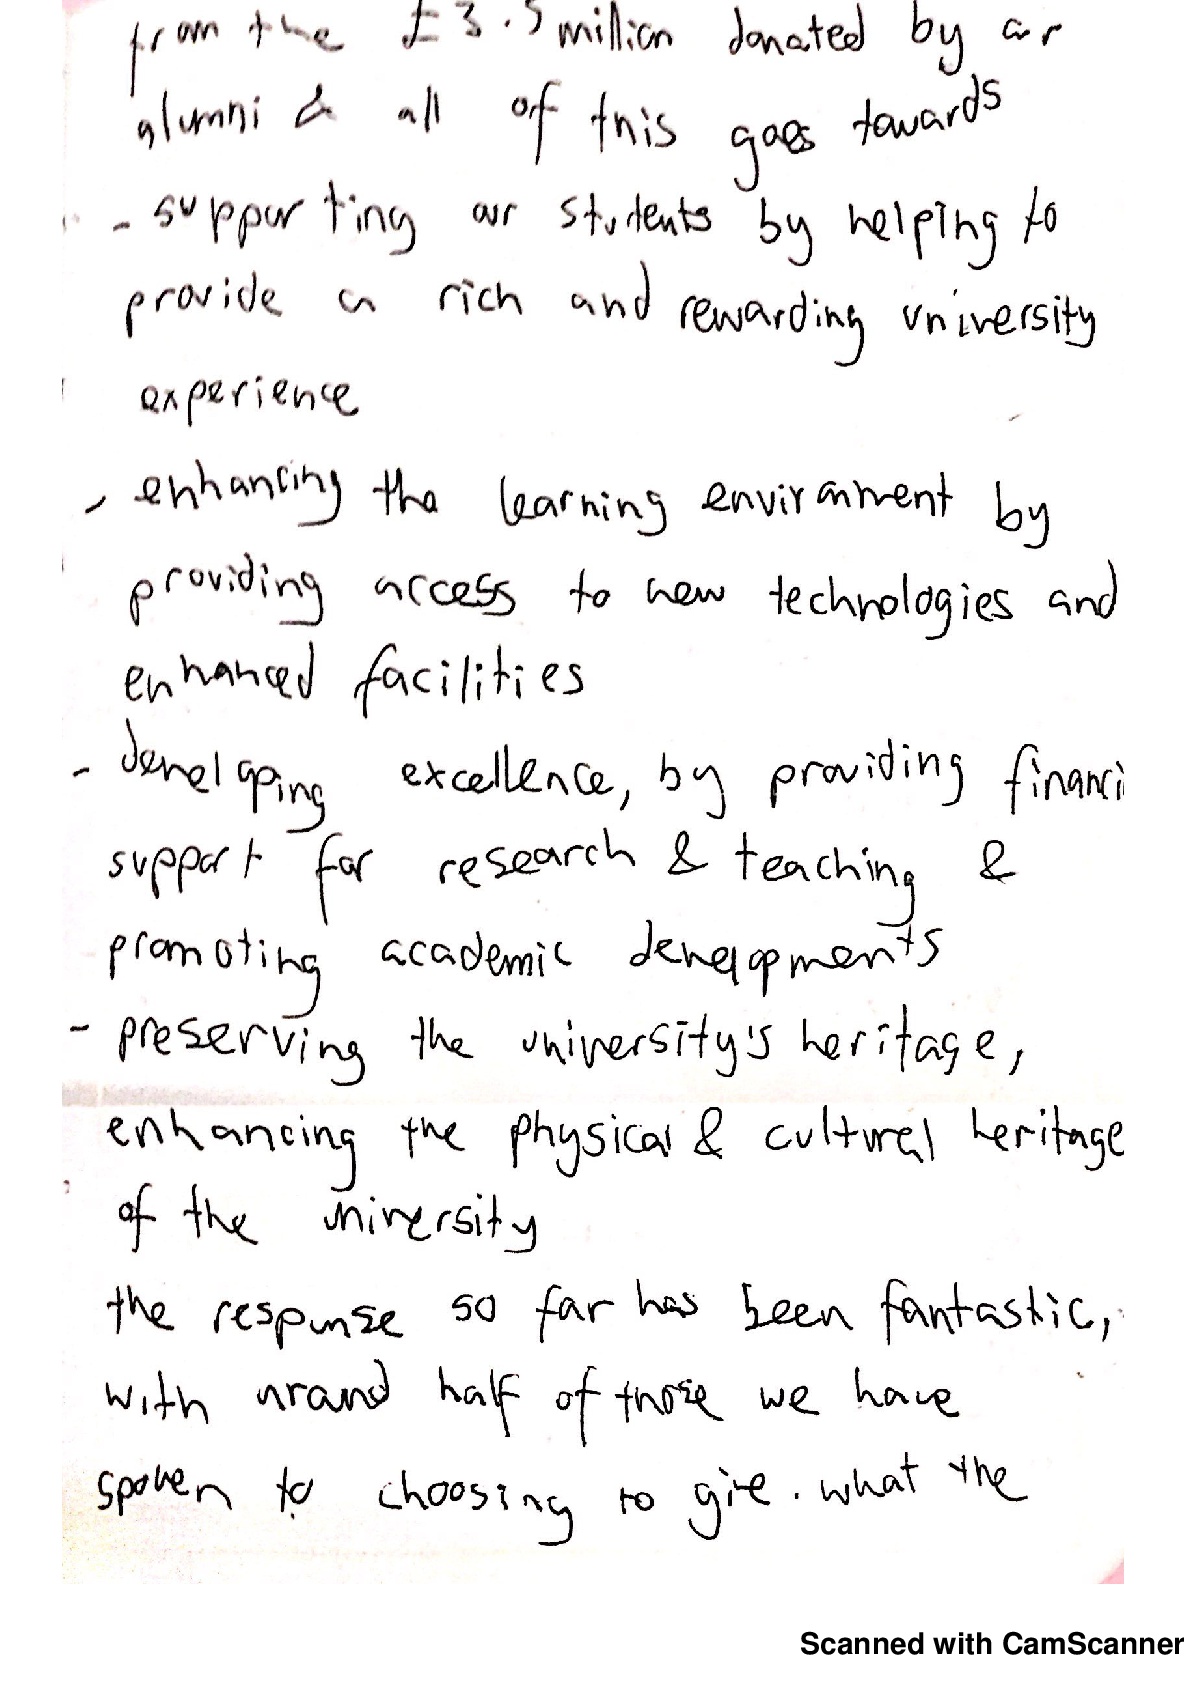 from the £3.5 million donated by our
alumni & all of this goes towards
- supporting our students by helping to
provide a rich and rewarding university
experience
- enhancing the learning environment by
providing access to new technologies and
enhanced facilities
- developing excellence, by providing financi
support for research & teaching &
promoting academic developments
- preserving the university's heritage,
enhancing the physical & cultural heritage
of the university
the response so far has been fantastic,
with around half of those we have
spoken to choosing to give. what the
Scanned with CamScanner